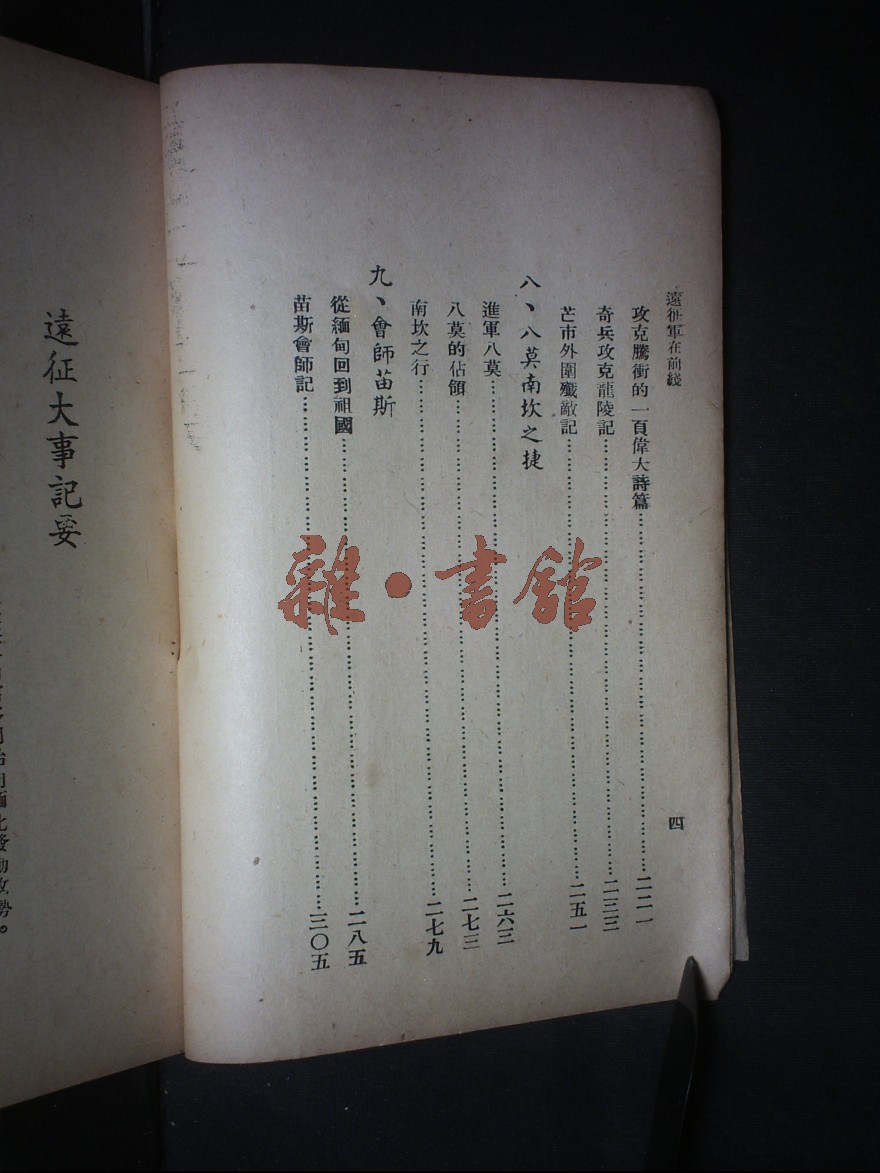 遠征軍在前綫
四
攻克騰衝的一頁偉大詩篇……二二一
奇兵攻克龍陵記……二三三
芒市外圍殲敵記……二五一
八、八莫南坎之捷
進軍八莫……二六三
八莫的佔領……二七三
南坎之行……二七九
九、會師苗斯
從緬甸回到祖國……二八五
苗斯會師記……三〇五
雜·書館
遠征大事記要